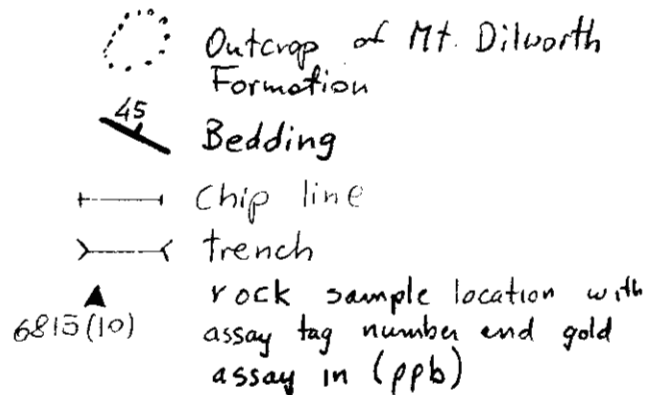 Outcrop of Mt. Dilworth
Formation
45
Bedding
Chip line
trench
rock sample location with
6815(10) assay tag number and gold
assay in (ppb)